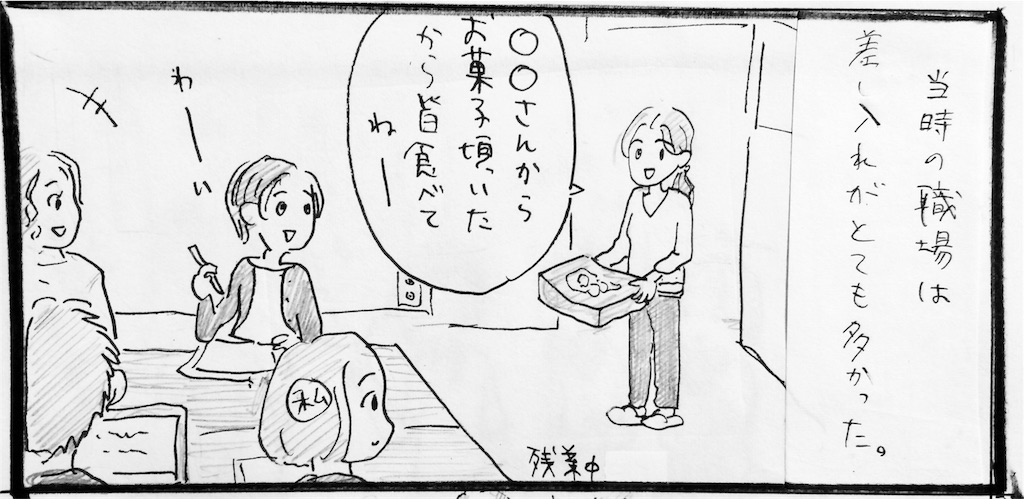 当時の職場は
差し入れがとても多かった。
○○さんから
お菓子頂いた
から皆食べて
ねー
わーい
私
残業中